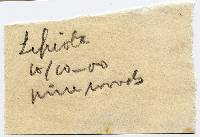 Lepiota
10/10-00
pine woods